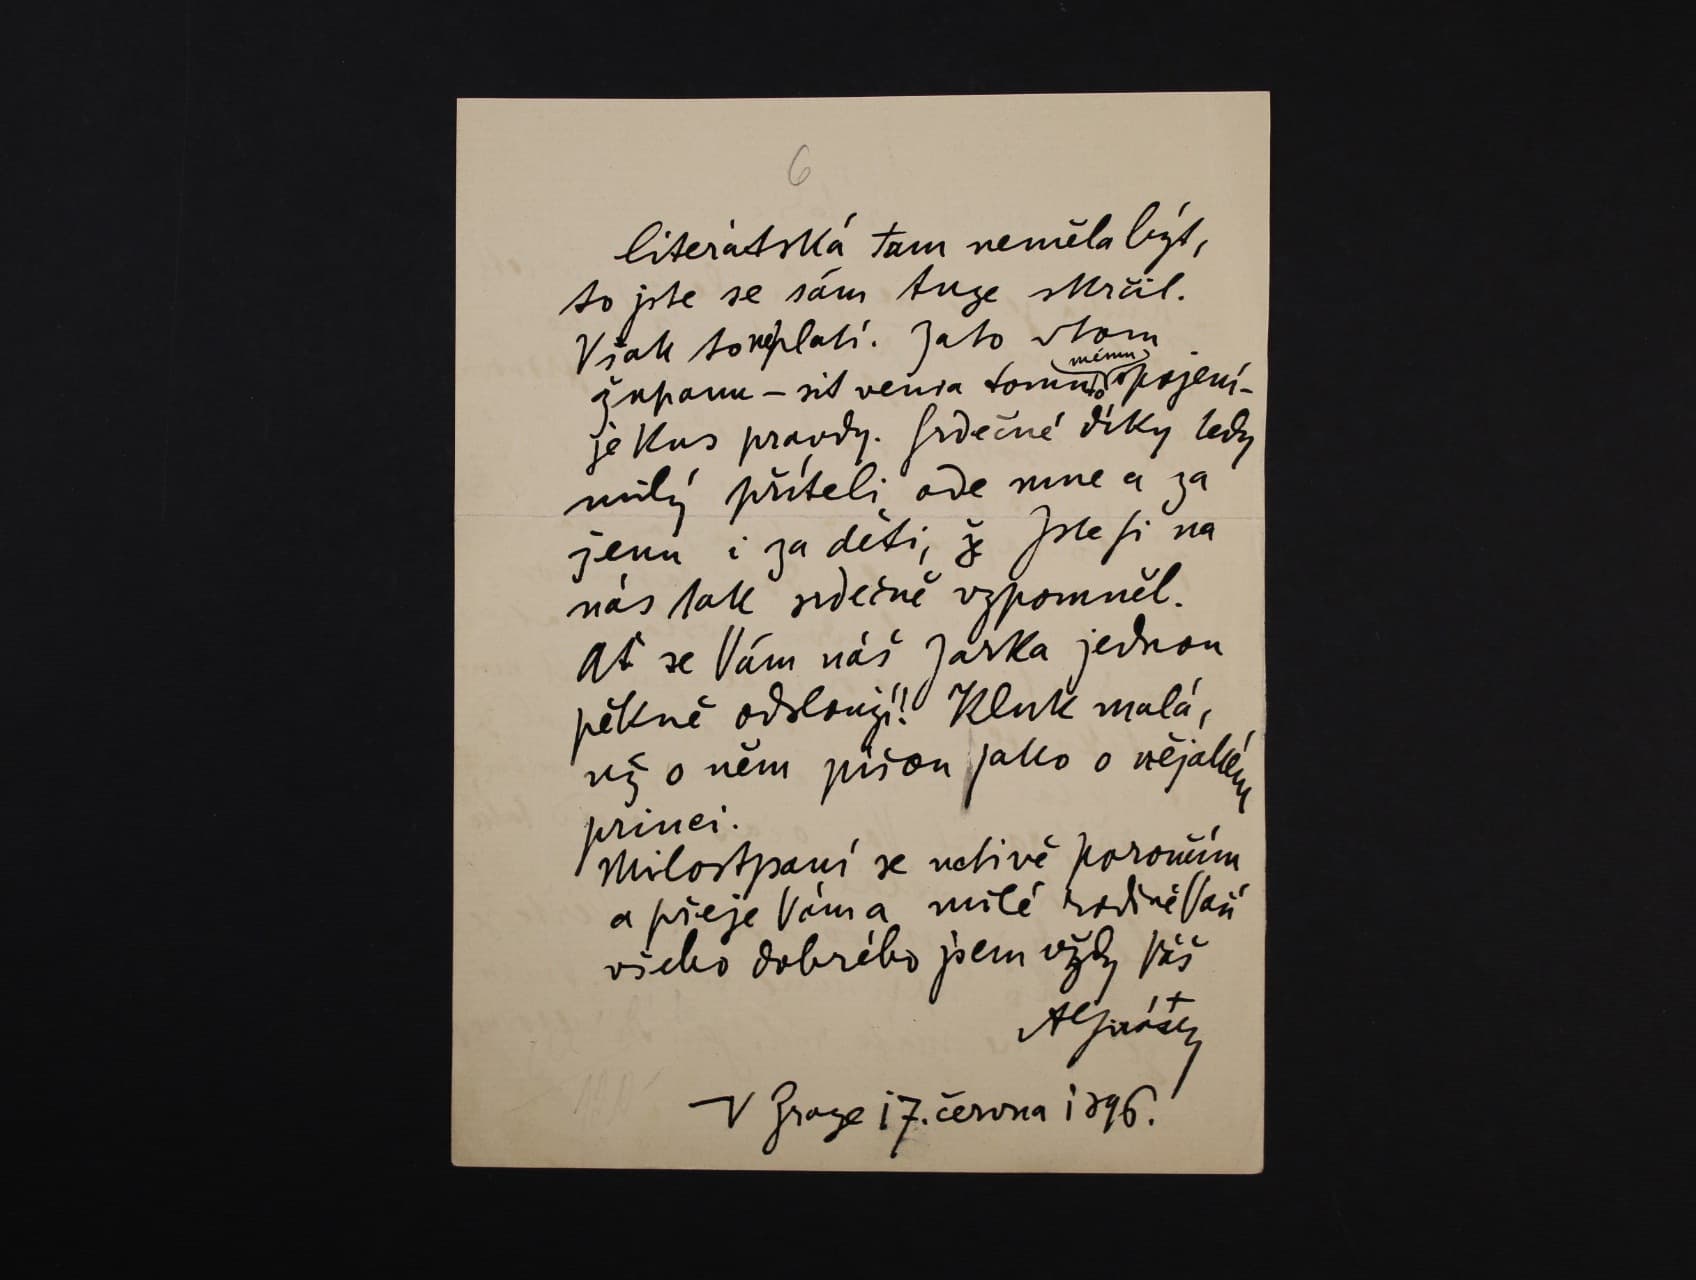 6
literátská tam neměla být,
to jste se sám tuze skrčil.
Však to neplatí. Zato v tom
županu – sit venia tomu mému spojení –
je kus pravdy. Srdečné díky tedy
milý příteli ode mne a za
ženu i za děti, že Jste si na
nás tak srdečně vzpomněl.
Ať se Vám náš Jarka jednou
pěkně odslouží! Kluk malá,
už o něm píšou jako o nějakém
princi.
Milostpaní se uctivě poroučím
a přeje Vám a milé rodině Vaší
všeho dobrého jsem vždy Váš
AJirásek
V Praze 17. června 1896.